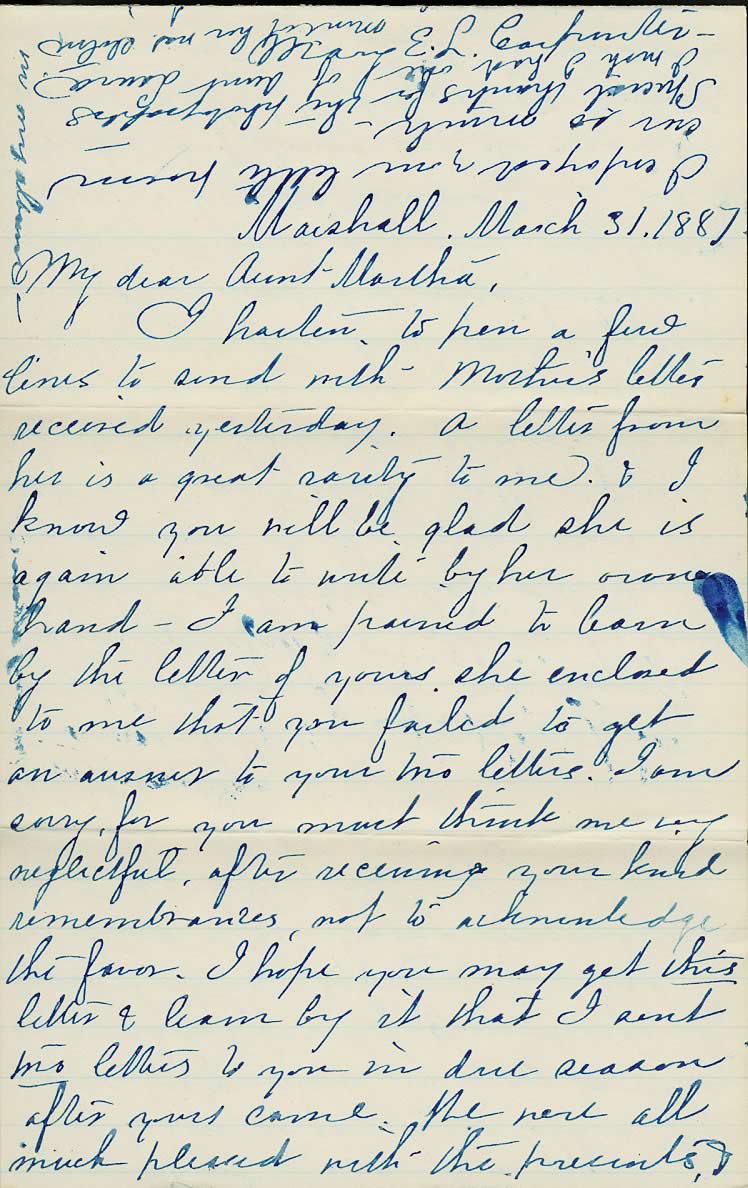 Marshall. March 31. 1887.
My dear Aunt Martha,
I hasten to pen a few
lines to send with Mother's letter
received yesterday. A letter from
her is a great rarity to me. & I
know you will be glad she is
again able to write by her own
hand - I am pained to learn
by the letter of yours she enclosed
to me that you failed to get
an answer to your two letters. I am
sorry, for you must think me very
neglectful, after receiving your kind
remembrances, not to acknowledge
the favor. I hope you may get this
letter & learn by it that I sent
two letters to you in due season
after yours came. We were all
much pleased with the presents, &
I enjoyed your little poem
ever so much - 
Special thanks for the photographs
I wish I had one of Aunt Laura
in my album -